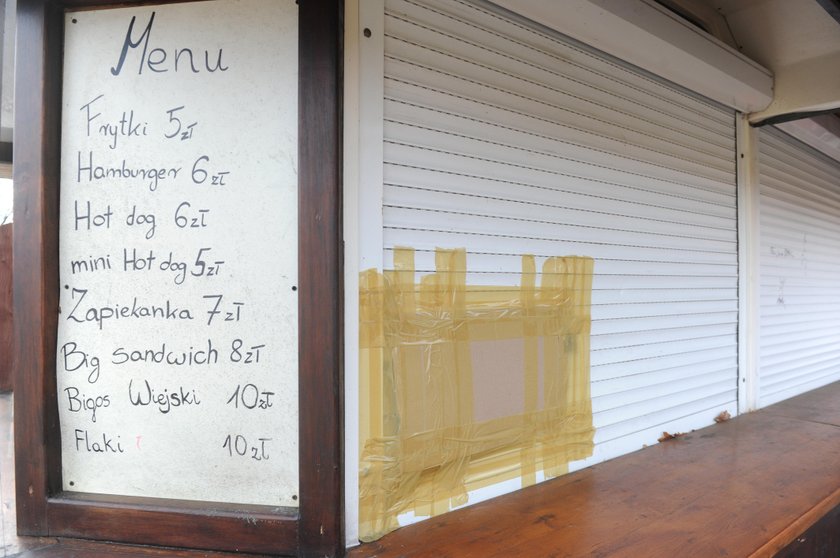 Menu
Frytki 5zł
Hamburger 6zł
Hot dog 6zł
mini Hot dog 5zł
Zapiekanka 7zł
Big sandwich 8zł
Bigos Wiejski 10zł
Flaki 10zł